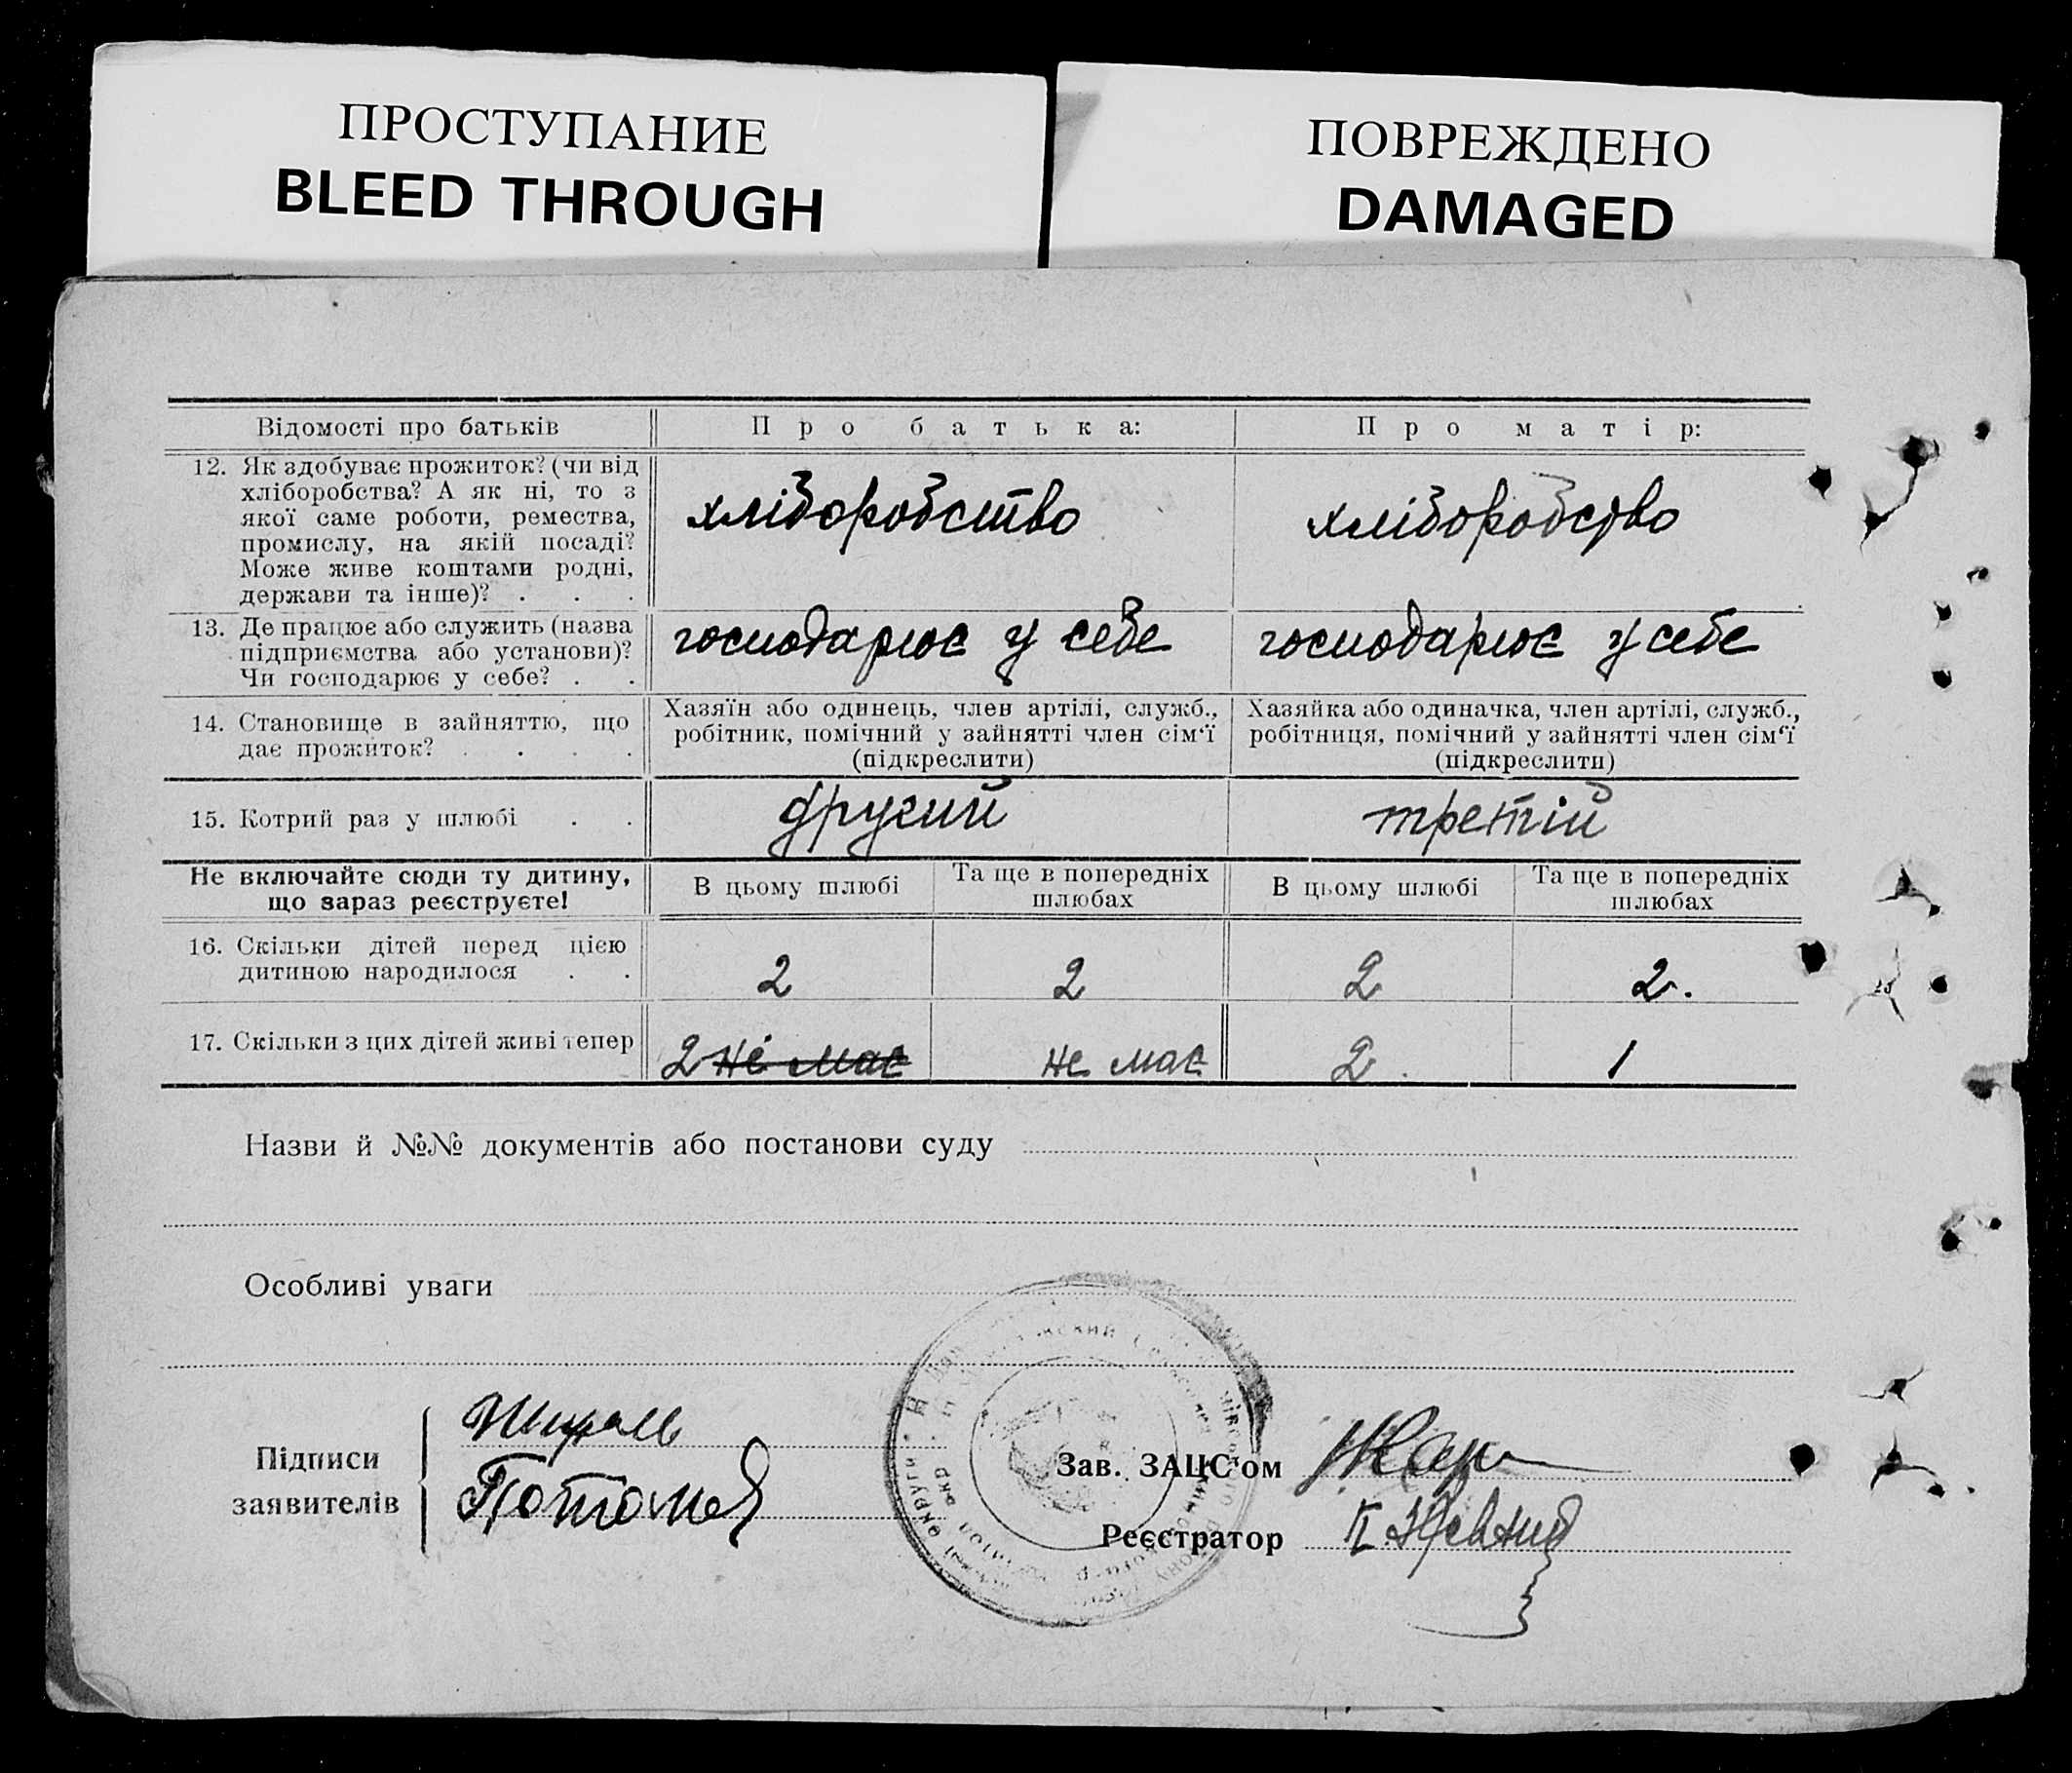 ПРОСТУПАНИЕ
BLEED THROUGH
ПОВРЕЖДЕНО
DAMAGED
Відомості про батьків
Про батька:
Про матір:
12. Як здобуває прожиток? (чи від
хліборобства? А як ні, то з
якої саме роботи, ремества,
промислу, на якій посаді?
Може живе коштами родні,
держави та інше)? . . .
хліборобство
хліборобство
13. Де працює або служить (назва
підприємства або установи)?
Чи господарює у себе? . .
господарює у себе
господарює у себе
14. Становище в зайняттю, що
дає прожиток? . . . .
Хазяїн або одинець, член артілі, служб.,
робітник, помічний у зайнятті член сім‘ї
(підкреслити)
Хазяйка або одиначка, член артілі, служб.,
робітниця, помічний у зайнятті член сім‘ї
(підкреслити)
15. Котрий раз у шлюбі . .
другий
третій
Не включайте сюди ту дитину,
що зараз реєструєте!
В цьому шлюбі
Та ще в попередніх
шлюбах
В цьому шлюбі
Та ще в попередніх
шлюбах
16. Скільки дітей перед цією
дитиною народилося . .
2
2
2
2.
17. Скільки з цих дітей живі тепер
2 не має
не має
2.
1
Назви й №№ документів або постанови суду
Особливі уваги
Підписи
заявителів
Зав. ЗАЦС‘ом
Реєстратор